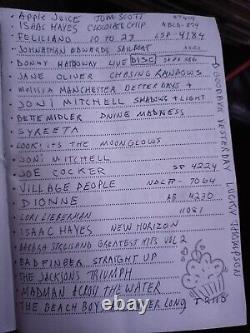 Apple Juice Tom Scott
ISAAC HAYES CHOCOLATE CHIP ABCD-874
FELICIANO 10 TO 23 LSP 4184
JOHNATHAN EDWARDS SAILBOAT
DONNY HATHAWAY LIVE DISC
JANE OLIVER CHASING RAINBOWS
MELISSA MANCHESTER BETTER DAYS +
JONI MITCHELL SHADOWS + LIGHT
BETE MIDLER DIVINE MADNESS
SYREETA
LOOK! IT'S THE MOONGLOWS
JONI MITCHELL
JOE COCKER SP 4224
VILLAGE PEOPLE NBLP-7064
DIONNE AB 4230
LORI LIEBERMAN 11081
ISAAC HAYES NEW HORIZON
BARBRA STREISAND GREATEST HITS VOL 2
BADFINGER STRAIGHT UP
THE JACKSONS TRIUMPH
MADMAN ACROSS THE WATER
THE BEACH BOYS SUMMER LONG
GOODBYE YESTERDAY LUCKY THOMPSON
ebay